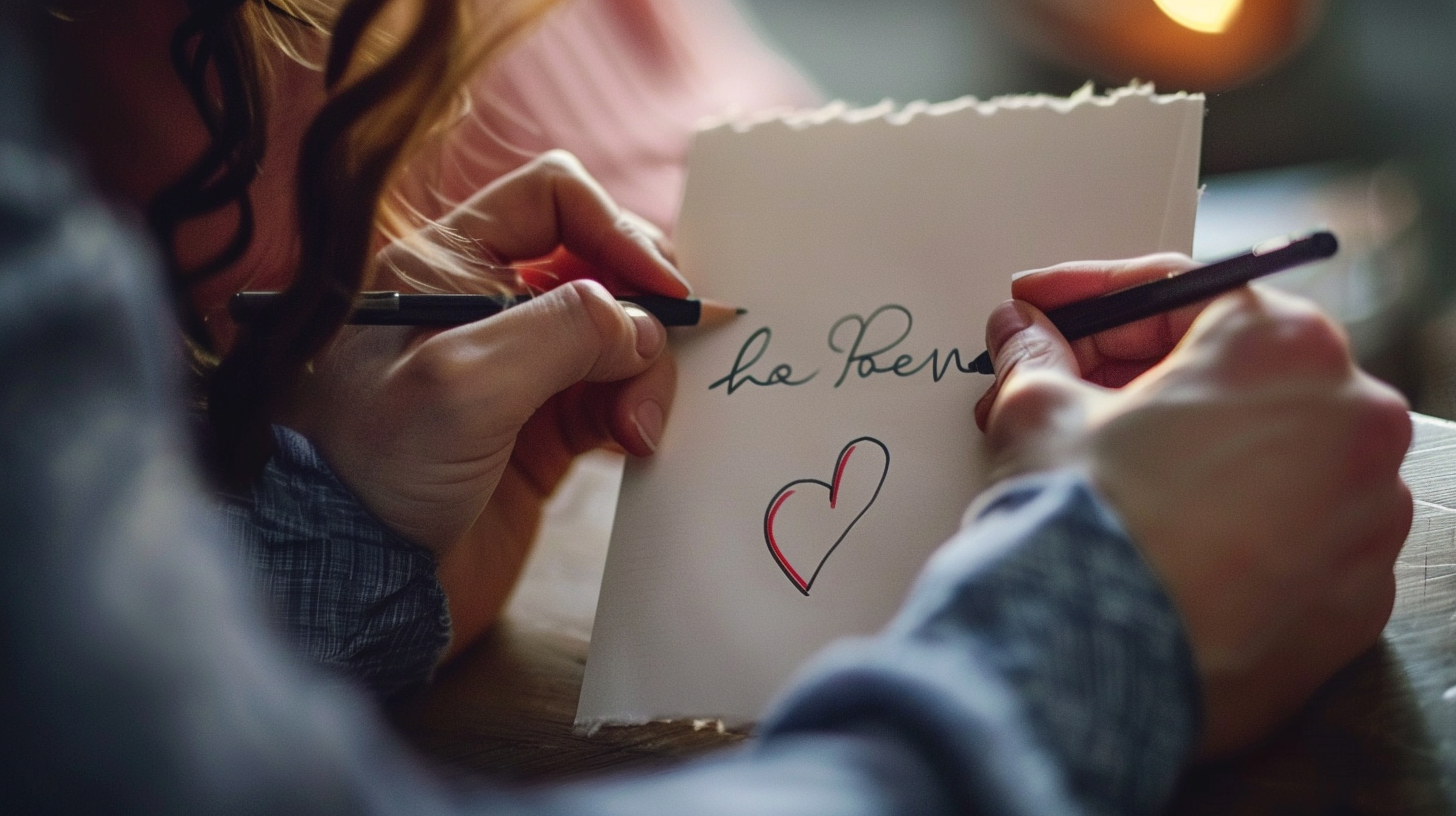 he Poen